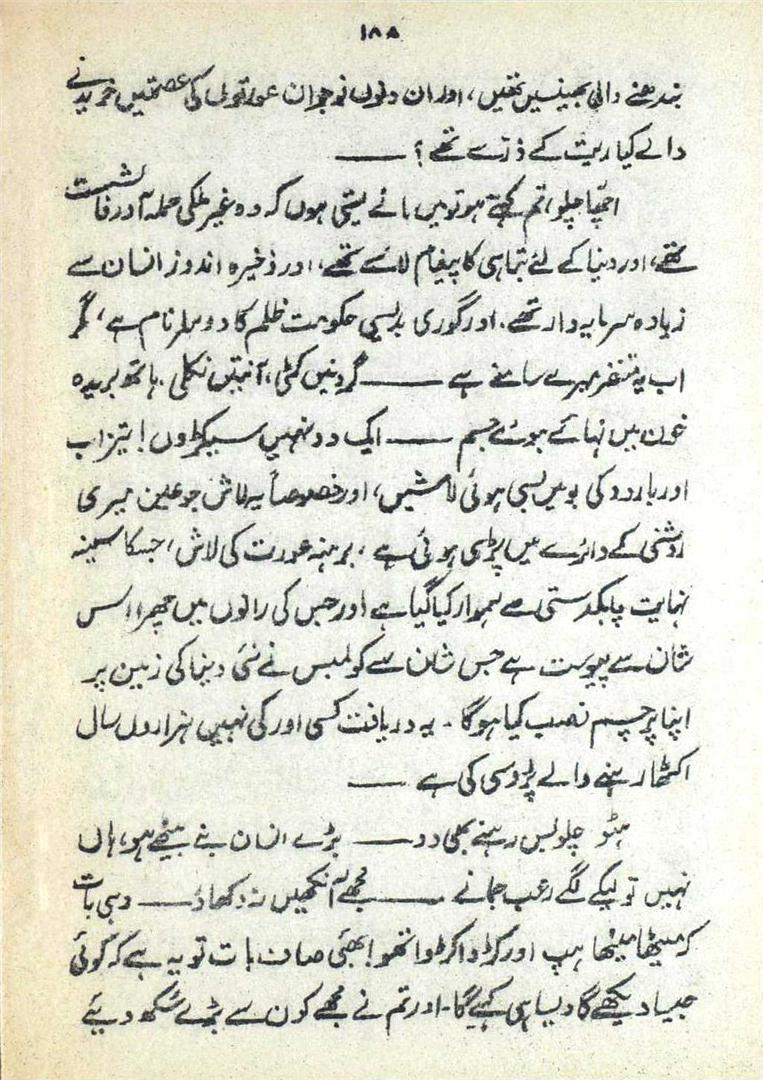 ۱۸۸
بندھنے والی بھینسیں تھیں، اور ان دنوں نوجوان عورتوں کی عصمتیں خریدنے
والے کیا ریت کے ذرّے تھے؟ ——
اچھا چلو، تم کہتے ہو تو میں مانے لیتی ہوں کہ وہ غیر ملکی حملہ آور فاشست
تھے، اور دنیا کے لئے تباہی کا پیغام لائے تھے، اور ذخیرہ اندوز انسان سے
زیادہ سرمایہ دار تھے۔ اور گوری بدلیسی حکومت ظلم کا دوسرا نام ہے، مگر
اب یہ منظر میرے سامنے ہے —— گردنیں کٹی، آنتیں نکلی، ہاتھ بریدہ
خون میں نہائے ہوئے جسم —— ایک دو نہیں سیکڑوں! تیزاب
اور بارود کی بو میں بسی ہوئی لاشیں، اور خصوصاً یہ لاش جو عین میری
روشنی کے دائرے میں پڑی ہوئی ہے، برہنہ عورت کی لاش، جسکا سینہ
نہایت چابکدستی سے ہموار کیا گیا ہے اور جس کی رانوں میں چھرا اس
شان سے پیوست ہے جس شان سے کولمبس نے نئی دنیا کی زمین پر
اپنا پرچم نصب کیا ہوگا۔ یہ دریافت کسی اور کی نہیں ہزاروں سال
اکٹھا رہنے والے پڑوسی کی ہے ——
ہٹو چلو بس رہنے بھی دو —— بڑے انسان بنے بیٹھے ہو، ہاں
نہیں تو لیکے لگے رعب جمانے —— مجھے آنکھیں نہ دکھاؤ —— وہی بات
کہ میٹھا میٹھا ہپ اور کڑوا کڑوا تھو! بھئی صاف بات تو یہ ہے کہ کوئی
جیسا دیکھے گا ویسا ہی کہے گا۔ اور تم نے مجھے کون سے بڑے سکھ دیئے